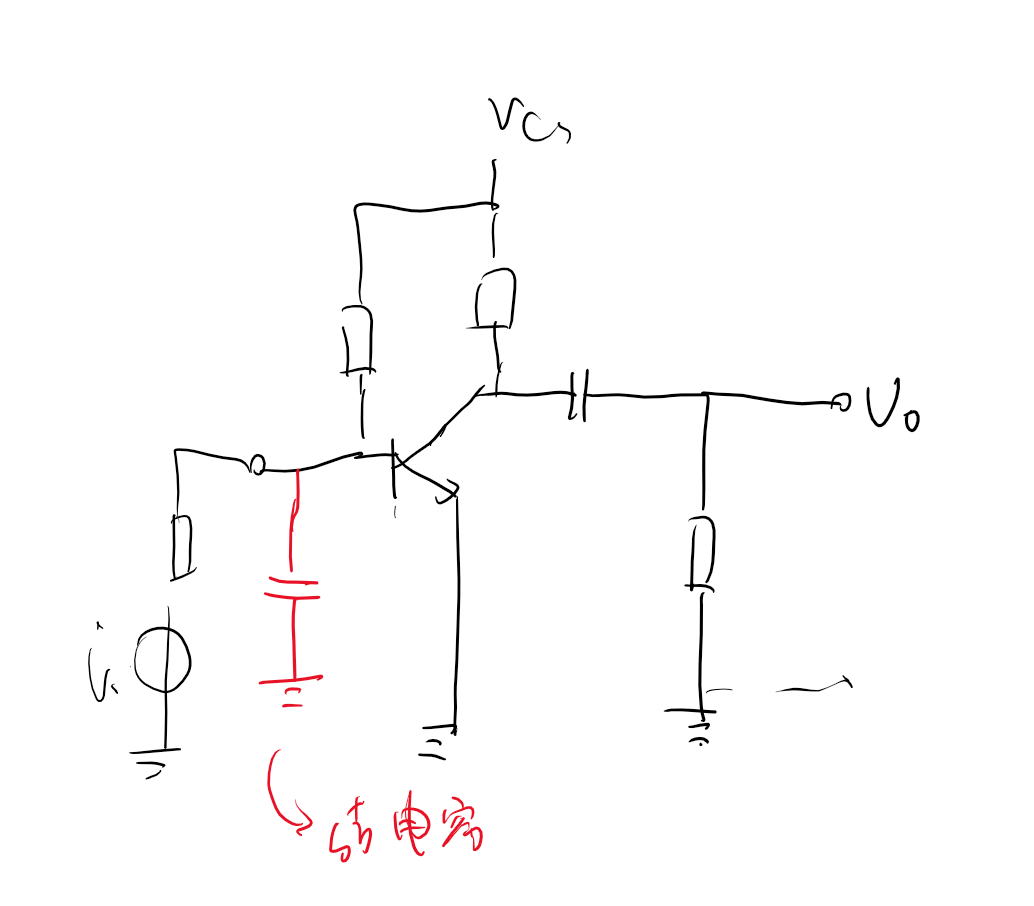 Vcc
Vo
Vs
结电容